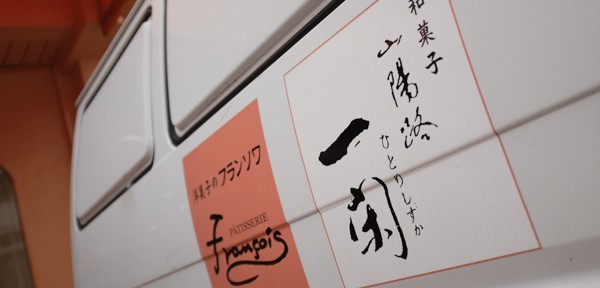 和菓子
山陽路
ひとりしずか
一閑
洋菓子のフランソワ
PÂTISSERIE
François